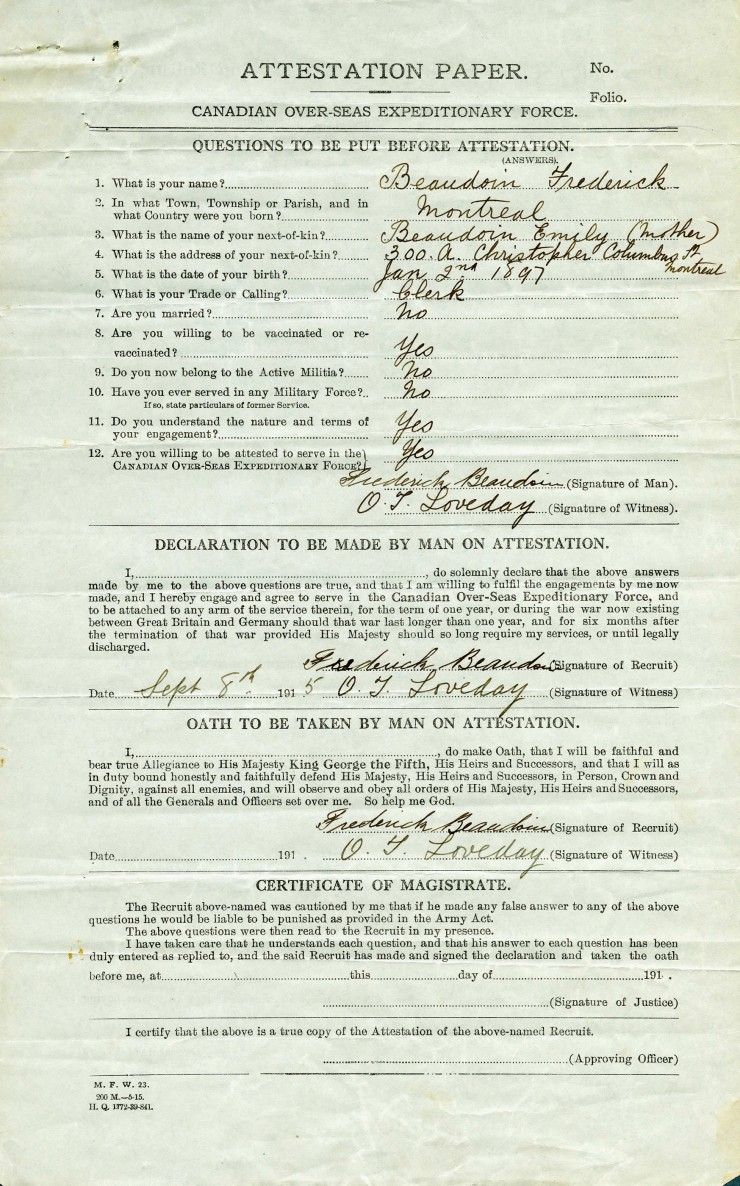 ATTESTATION PAPER.
No.
Folio.
CANADIAN OVER-SEAS EXPEDITIONARY FORCE.
QUESTIONS TO BE PUT BEFORE ATTESTATION.
(ANSWERS).
1. What is your name? Beaudoin Frederick
2. In what Town, Township or Parish, and in
what Country were you born? Montreal
3. What is the name of your next-of-kin? Beaudoin Emily (Mother)
4. What is the address of your next-of-kin? 300. A. Christopher Columbus St
Montreal
5. What is the date of your birth? Jan 2nd 1897
6. What is your Trade or Calling? Clerk
7. Are you married? No
8. Are you willing to be vaccinated or re-
vaccinated? Yes
9. Do you now belong to the Active Militia? No
10. Have you ever served in any Military Force? No
If so, state particulars of former Service.
11. Do you understand the nature and terms of
your engagement? Yes
12. Are you willing to be attested to serve in the Yes
CANADIAN OVER-SEAS EXPEDITIONARY FORCE?
Frederick Beaudoin (Signature of Man).
O. T. Loveday (Signature of Witness).
DECLARATION TO BE MADE BY MAN ON ATTESTATION.
I, , do solemnly declare that the above answers
made by me to the above questions are true, and that I am willing to fulfil the engagements by me now
made, and I hereby engage and agree to serve in the Canadian Over-Seas Expeditionary Force, and
to be attached to any arm of the service therein, for the term of one year, or during the war now existing
between Great Britain and Germany should that war last longer than one year, and for six months after
the termination of that war provided His Majesty should so long require my services, or until legally
discharged.
Frederick Beaudoin (Signature of Recruit)
Date Sept 8th. 1915 O. T. Loveday (Signature of Witness)
OATH TO BE TAKEN BY MAN ON ATTESTATION.
I, , do make Oath, that I will be faithful and
bear true Allegiance to His Majesty King George the Fifth, His Heirs and Successors, and that I will as
in duty bound honestly and faithfully defend His Majesty, His Heirs and Successors, in Person, Crown and
Dignity, against all enemies, and will observe and obey all orders of His Majesty, His Heirs and Successors,
and of all the Generals and Officers set over me. So help me God.
Frederick Beaudoin (Signature of Recruit)
Date 191 . O. T. Loveday (Signature of Witness)
CERTIFICATE OF MAGISTRATE.
The Recruit above-named was cautioned by me that if he made any false answer to any of the above
questions he would be liable to be punished as provided in the Army Act.
The above questions were then read to the Recruit in my presence.
I have taken care that he understands each question, and that his answer to each question has been
duly entered as replied to, and the said Recruit has made and signed the declaration and taken the oath
before me, at this day of 191 .
(Signature of Justice)
I certify that the above is a true copy of the Attestation of the above-named Recruit.
(Approving Officer)
M. F. W. 23.
200 M.—5-15.
H. Q. 1772-39-841.